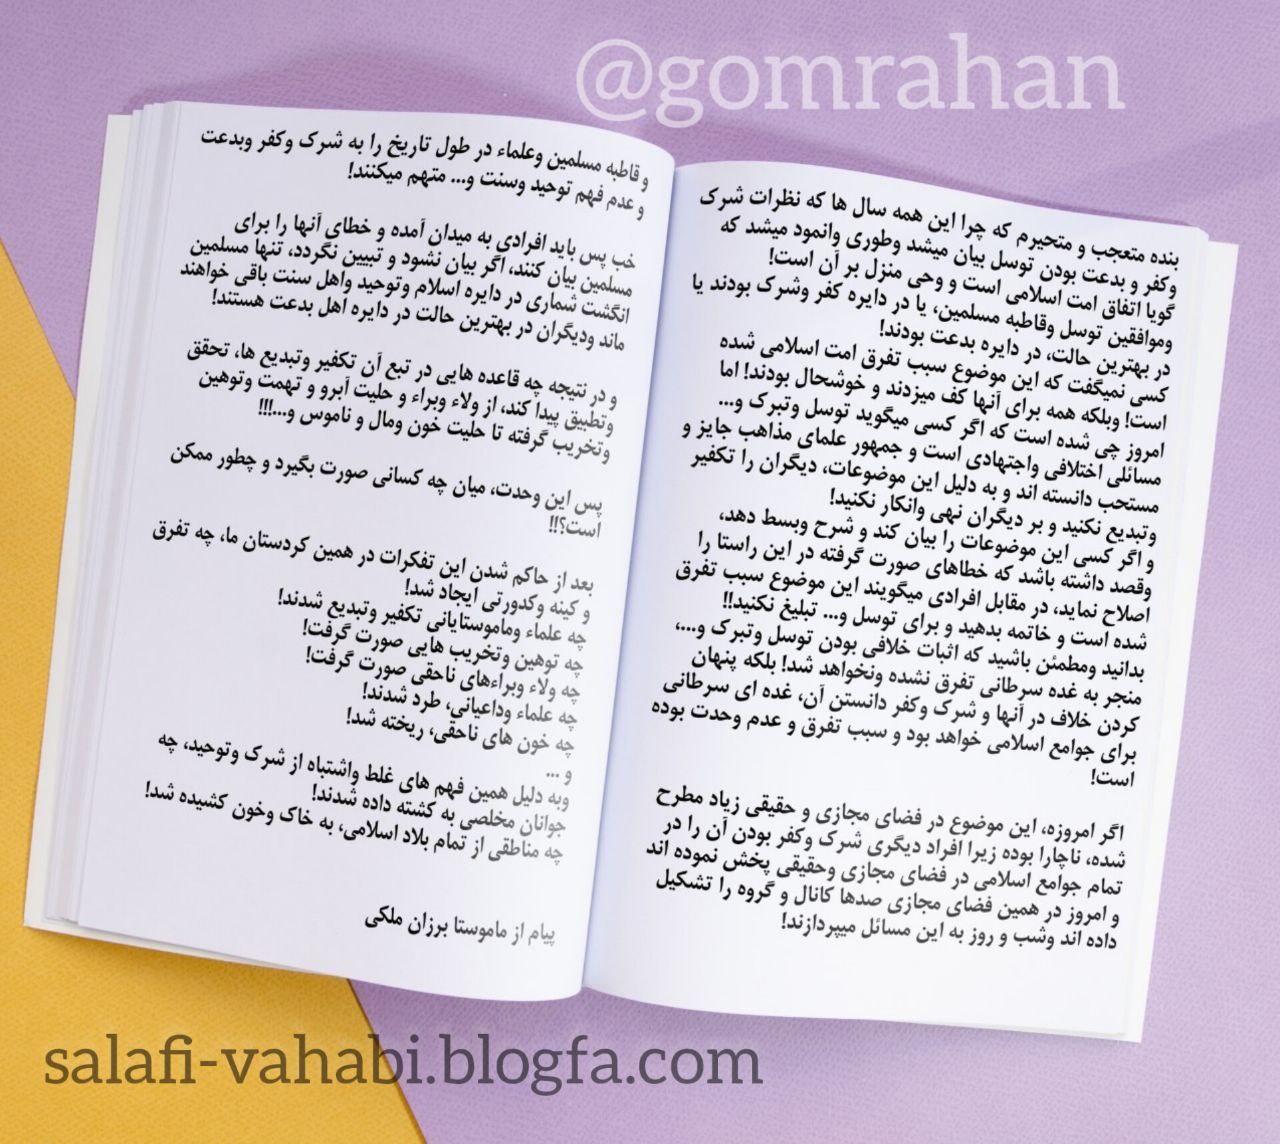 @gomrahan
بنده متعجب و متحیرم که چرا این همه سال ها که نظرات شرک
وکفر و بدعت بودن توسل بیان میشد وطوری وانمود میشد که
گویا اتفاق امت اسلامی است و وحی منزل بر آن است!
وموافقین توسل وقاطبه مسلمین، یا در دایره کفر وشرک بودند یا
در بهترین حالت، در دایره بدعت بودند!
کسی نمیگفت که این موضوع سبب تفرق امت اسلامی شده
است! وبلکه همه برای آنها کف میزدند و خوشحال بودند! اما
امروز چی شده است که اگر کسی میگوید توسل وتبرک و...
مسائلی اختلافی واجتهادی است و جمهور علمای مذاهب جایز و
مستحب دانسته اند و به دلیل این موضوعات، دیگران را تکفیر
وتبدیع نکنید و بر دیگران نهی وانکار نکنید!
و اگر کسی این موضوعات را بیان کند و شرح وبسط دهد،
وقصد داشته باشد که خطاهای صورت گرفته در این راستا را
اصلاح نماید، در مقابل افرادی میگویند این موضوع سبب تفرق
شده است و خاتمه بدهید و برای توسل و... تبلیغ نکنید!!
بدانید ومطمئن باشید که اثبات خلافی بودن توسل وتبرک و...،
منجر به غده سرطانی تفرق نشده ونخواهد شد! بلکه پنهان
کردن خلاف در آنها و شرک وکفر دانستن آن، غده ای سرطانی
برای جوامع اسلامی خواهد بود و سبب تفرق و عدم وحدت بوده
است!
اگر امروزه، این موضوع در فضای مجازی و حقیقی زیاد مطرح
شده، ناچارا بوده زیرا افراد دیگری شرک وکفر بودن آن را در
تمام جوامع اسلامی در فضای مجازی وحقیقی پخش نموده اند
و امروز در همین فضای مجازی صدها کانال و گروه را تشکیل
داده اند وشب و روز به این مسائل میپردازند!
و قاطبه مسلمین وعلماء در طول تاریخ را به شرک وکفر وبدعت
و عدم فهم توحید وسنت و... متهم میکنند!
خب پس باید افرادی به میدان آمده و خطای آنها را برای
مسلمین بیان کنند، اگر بیان نشود و تبیین نگردد، تنها مسلمین
انگشت شماری در دایره اسلام وتوحید واهل سنت باقی خواهند
ماند ودیگران در بهترین حالت در دایره اهل بدعت هستند!
و در نتیجه چه قاعده هایی در تبع آن تکفیر وتبدیع ها، تحقق
وتطبیق پیدا کند، از ولاء وبراء و حلیت آبرو و تهمت وتوهین
وتخریب گرفته تا حلیت خون ومال و ناموس و...!!!
پس این وحدت، میان چه کسانی صورت بگیرد و چطور ممکن
است؟!!
بعد از حاکم شدن این تفکرات در همین کردستان ما، چه تفرق
و کینه وکدورتی ایجاد شد!
چه علماء وماموستایانی تکفیر وتبدیع شدند!
چه توهین وتخریب هایی صورت گرفت!
چه ولاء وبراءهای ناحقی صورت گرفت!
چه علماء وداعیانی، طرد شدند!
چه خون های ناحقی، ریخته شد!
و ...
وبه دلیل همین فهم های غلط واشتباه از شرک وتوحید، چه
جوانان مخلصی به کشته داده شدند!
چه مناطقی از تمام بلاد اسلامی، به خاک وخون کشیده شد!
پیام از ماموستا برزان ملکی
salafi-vahabi.blogfa.com